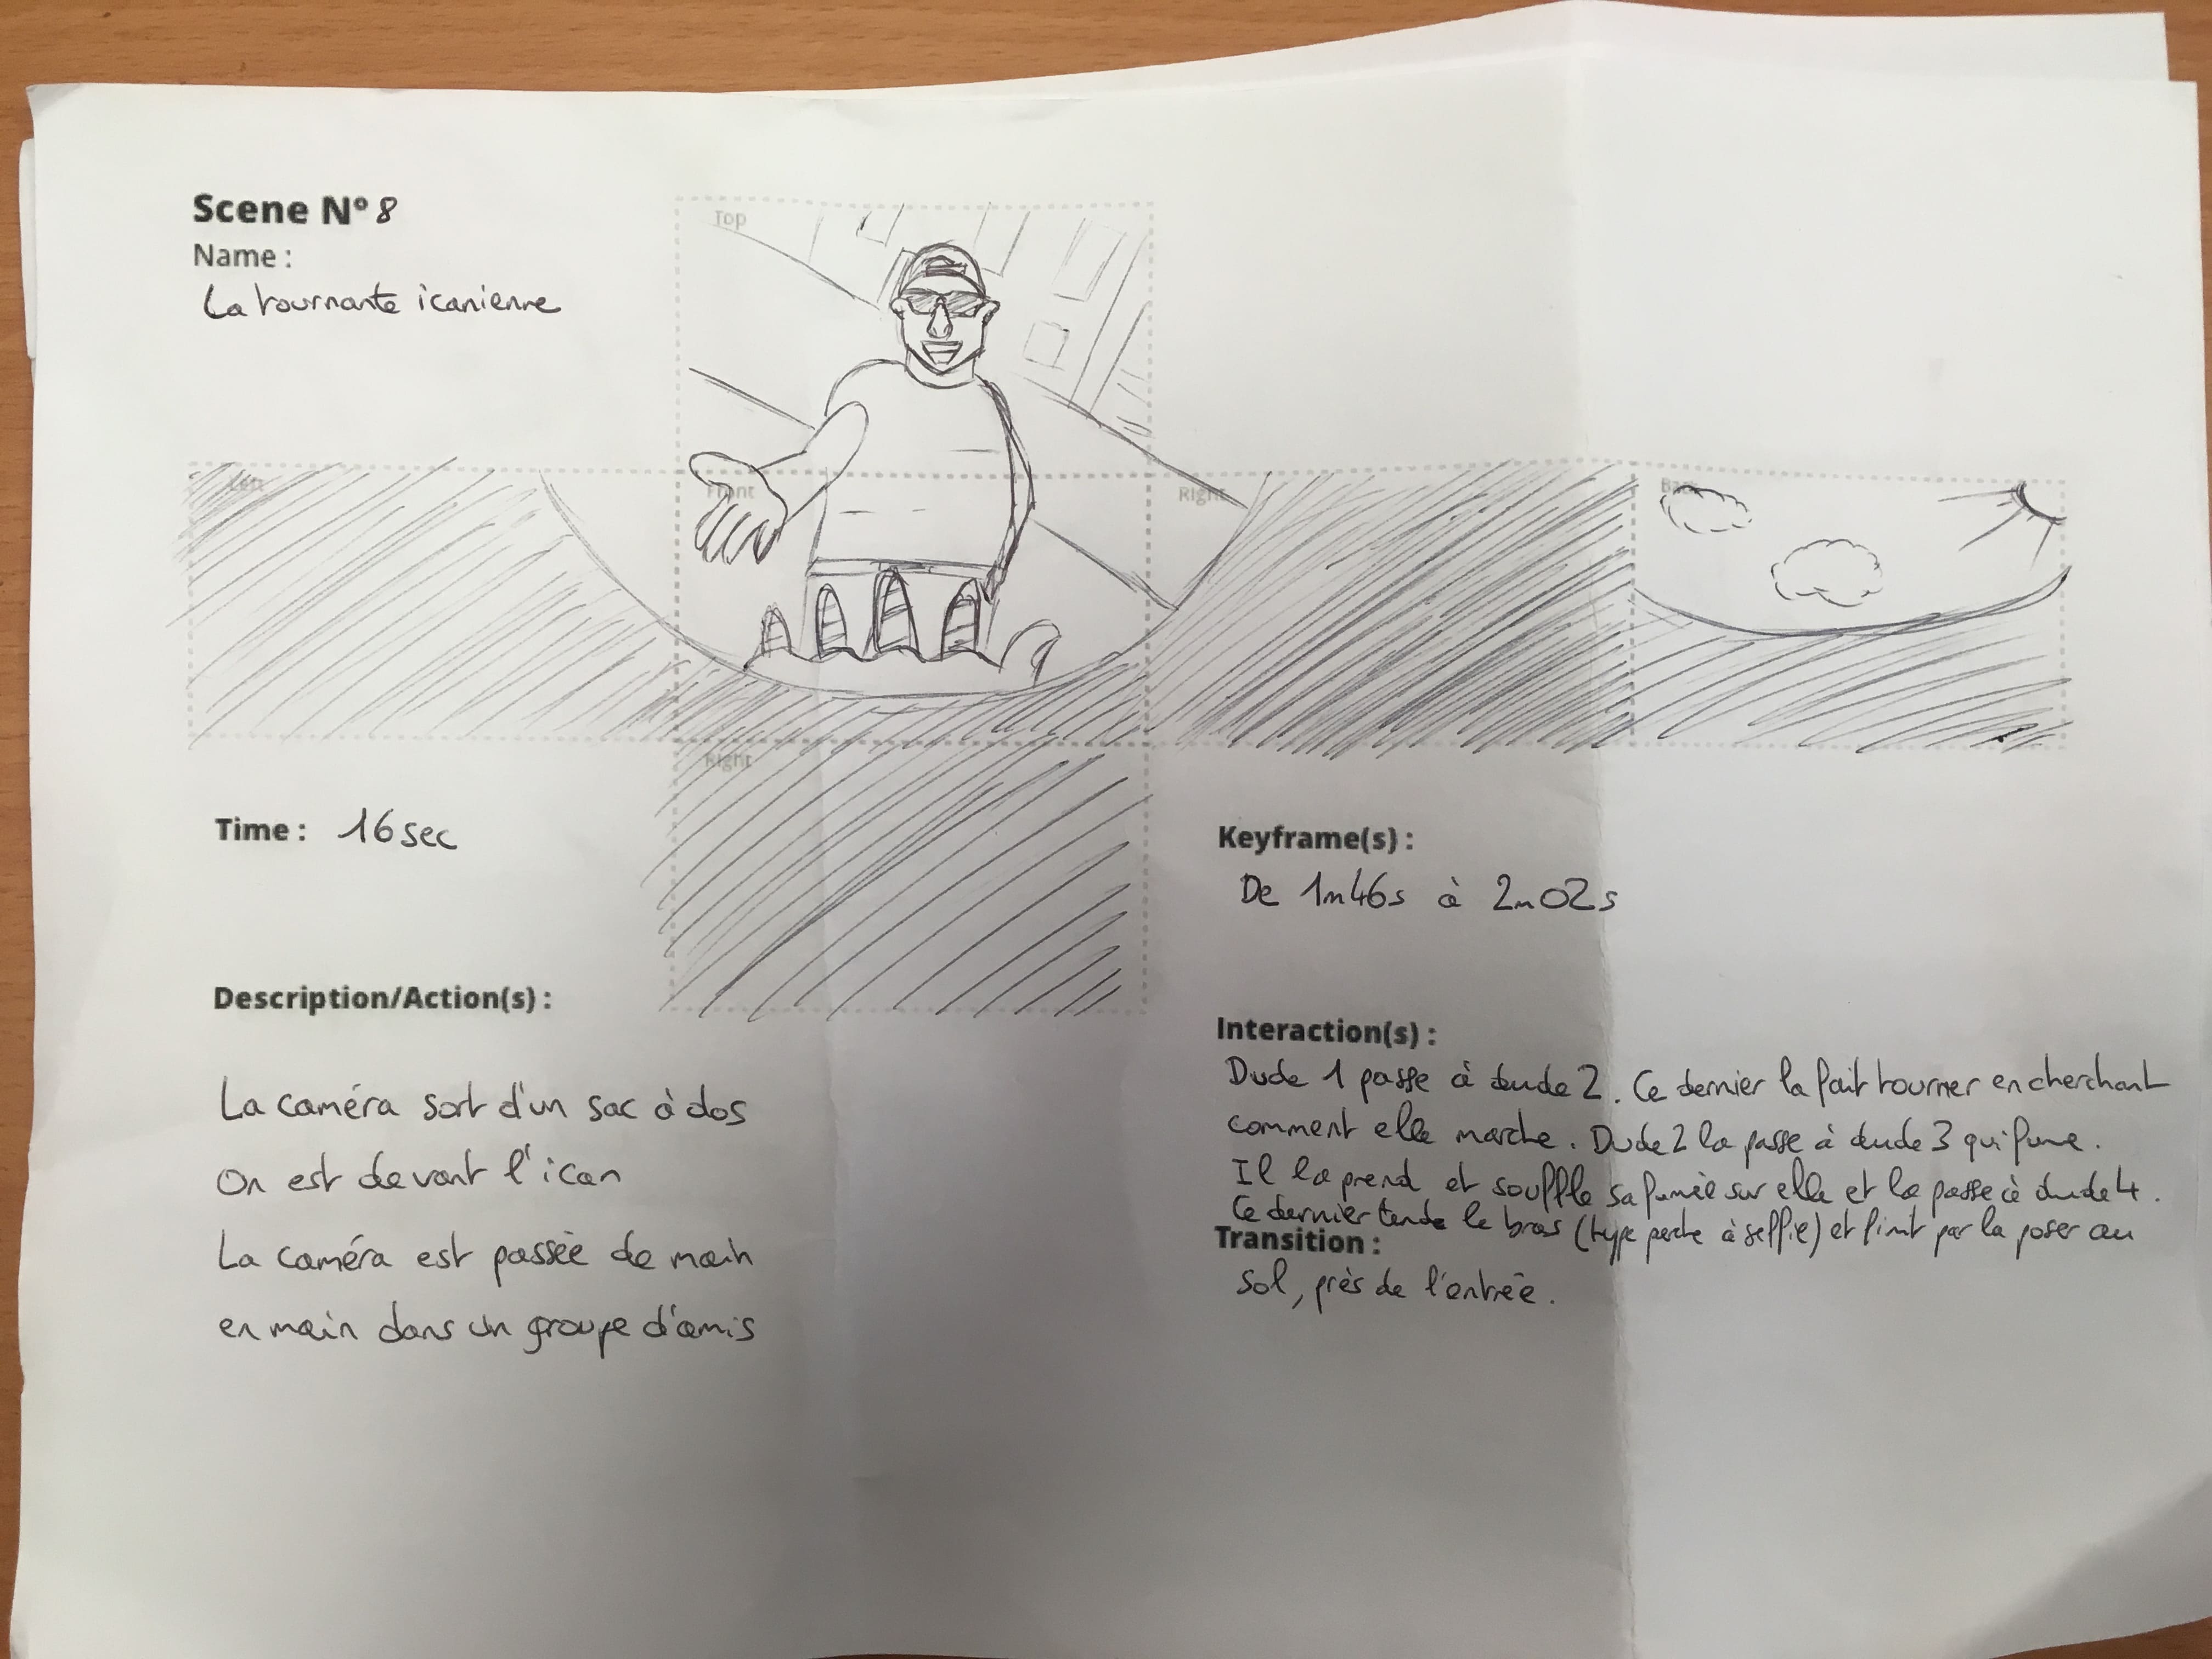 Scene N° 8
Name :
La tournante icanienne
Top
Left
Front
Right
Back
Right
Time : 16 sec
Keyframe(s) :
De 1m46s à 2m02s
Description/Action(s) :
La caméra sort d'un sac à dos
On est devant l'ican
La caméra est passée de main
en main dans un groupe d'amis
Interaction(s) :
Dude 1 passe à dude 2. Ce dernier la fait tourner en cherchant
comment elle marche. Dude 2 la passe à dude 3 qui fume.
Il la prend et souffle sa fumée sur elle et la passe à dude 4.
Ce dernier tende le bras (type perche à selfie) et finit par la poser au
Transition :
sol, près de l'entrée.